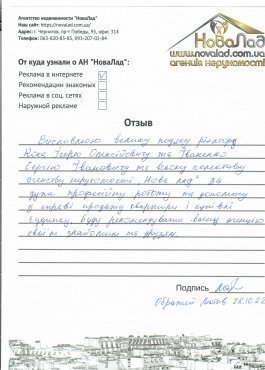 Агентство недвижимости "НоваЛад"
Сайт: https://novalad.com.ua/
Адрес: г. Чернигов, пр-т Победы, 95, офис 314
Телефон: 065-820-85-85, 093-207-02-84
НоваЛад
www.novalad.com.ua
агенція нерухомості
От куда узнали о АН "НоваЛад":
Реклама в интернете
Рекомендации знакомых
Реклама в соц. сетях
Наружной рекламе
Отзыв
Висловлюю велику подяку ріелтору
Ігорю Олексійовичу та
Сергію Івановичу та всьому колективу
агенству нерухомості "Нова лад" за
дуже професійну роботу та допомогу
у справі продажу квартири і купівлі
будинку, буду рекомендувати вашу агенцію
своїм знайомим та друзям.
Подпись
28.10.22